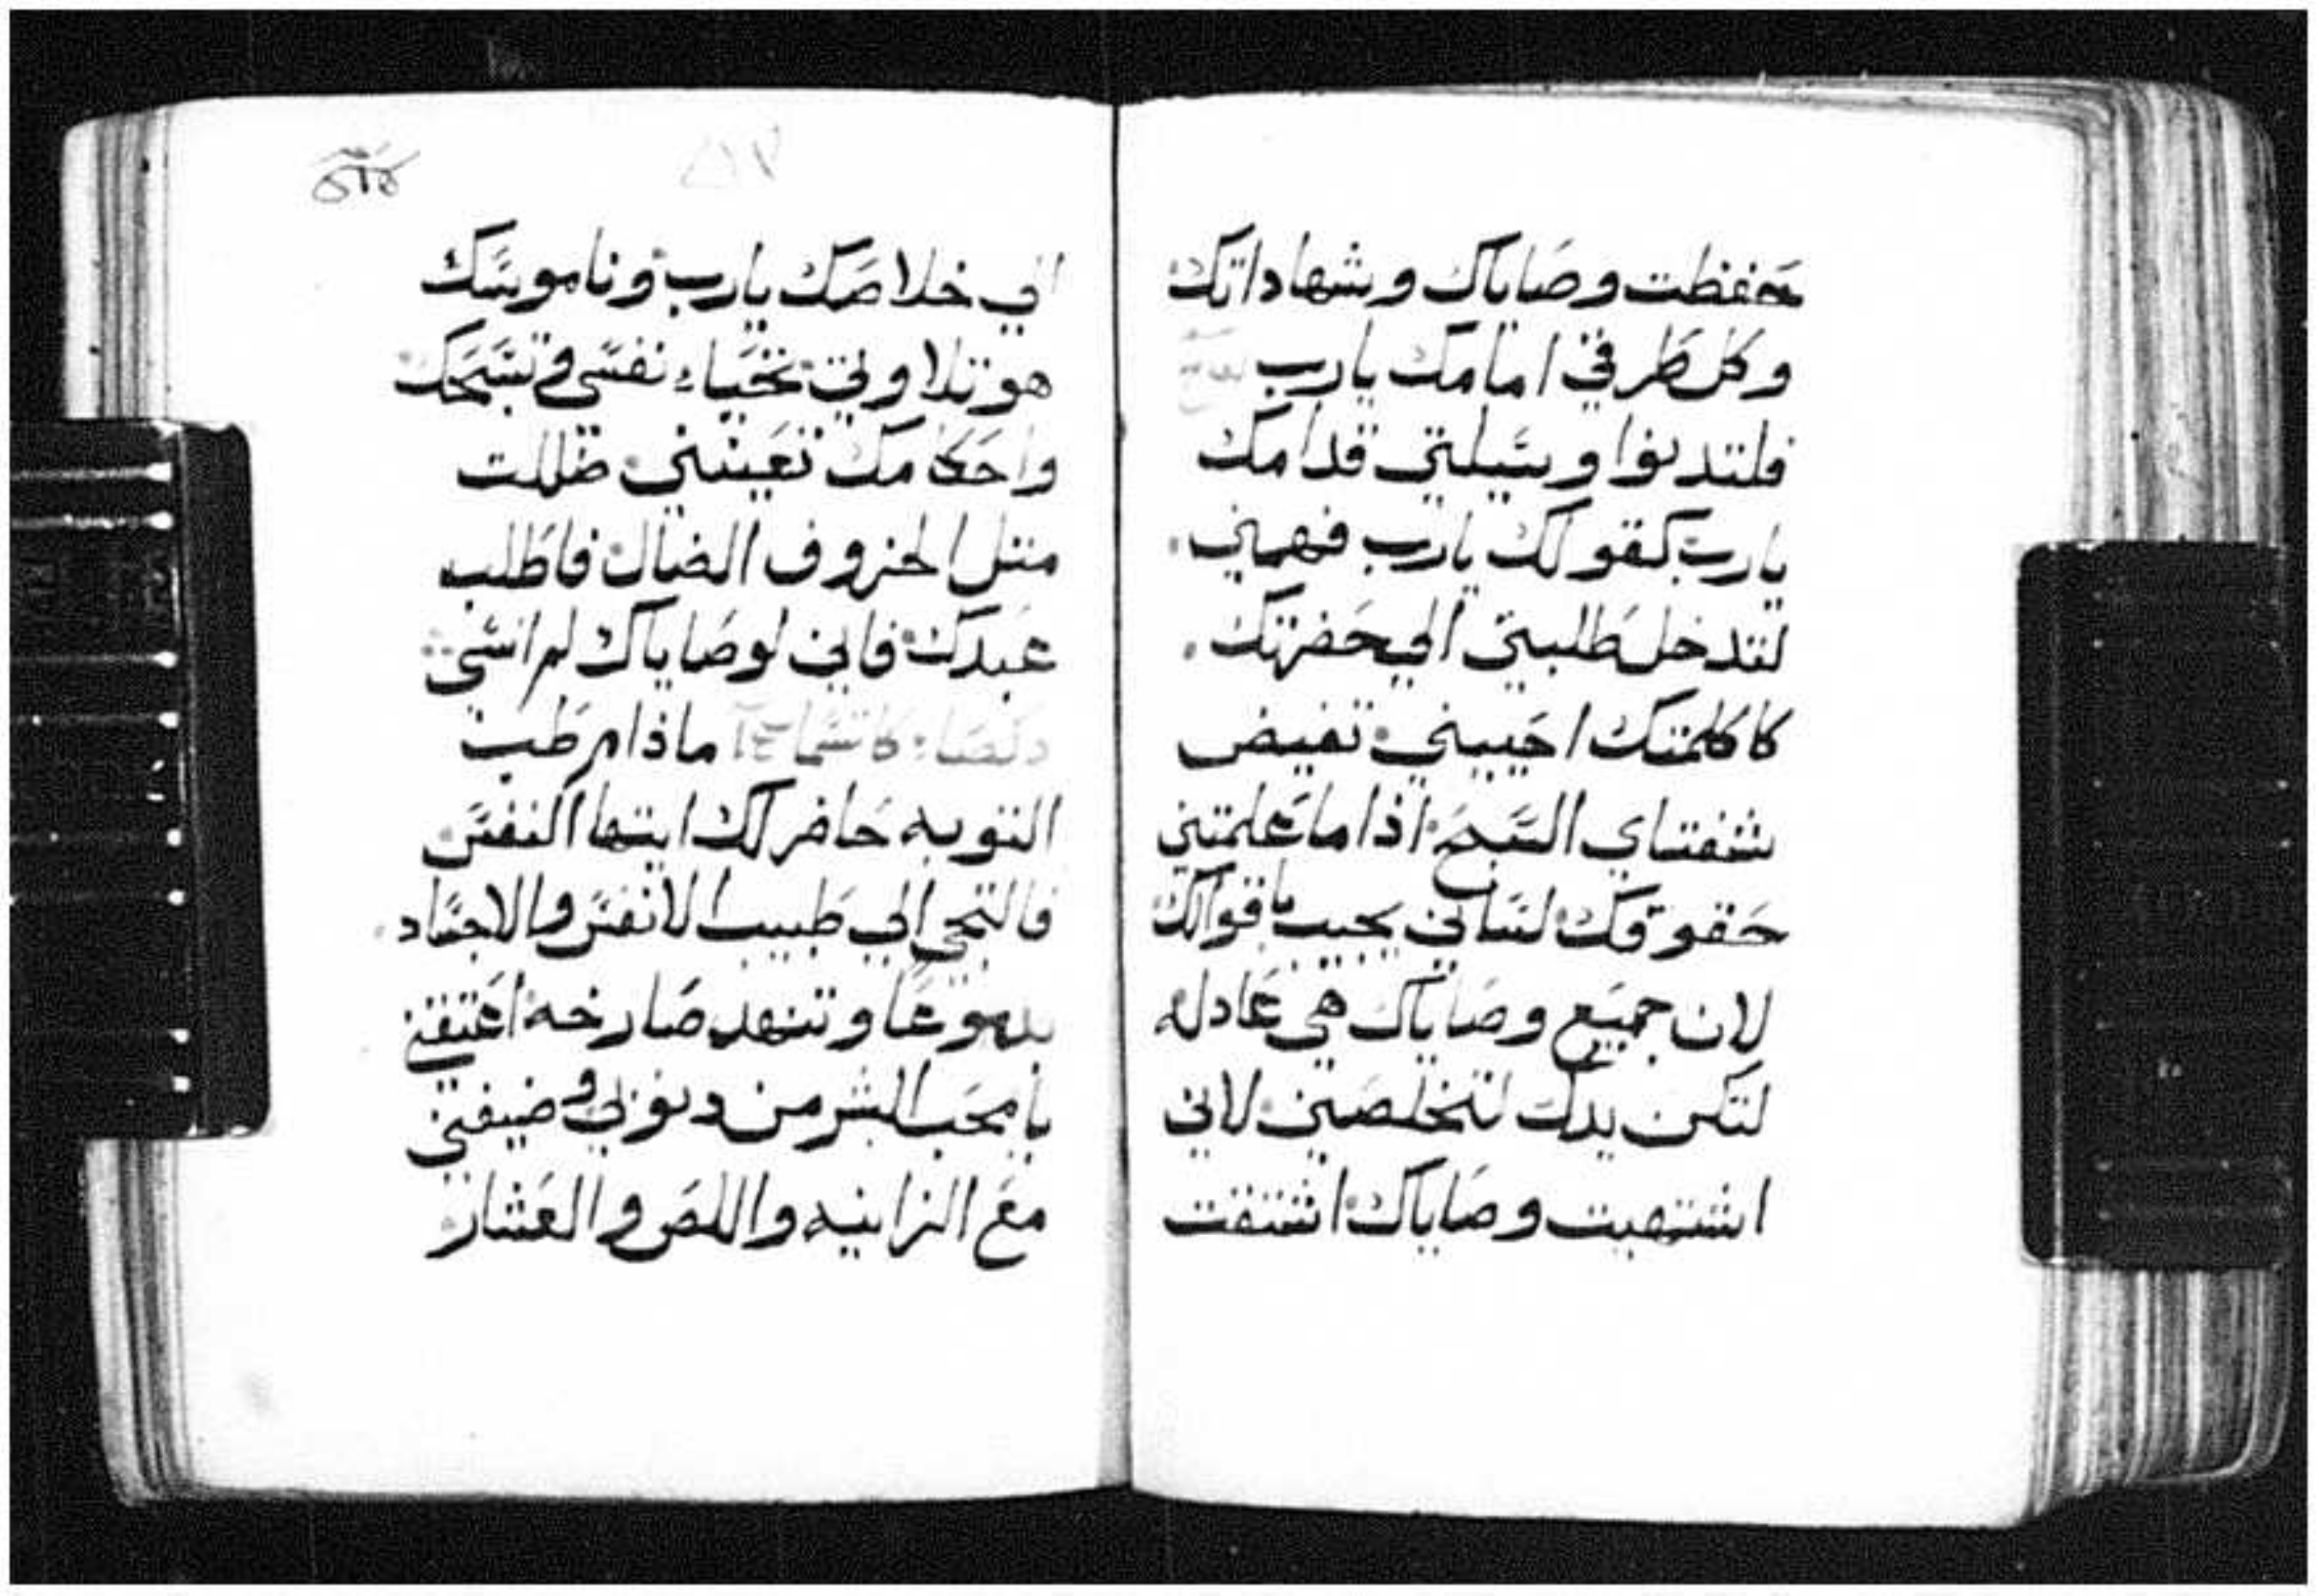 حفظت وصاياك وشهاداتك
وكل طرقي امامك يارب
فلتدنوا وسيلتي قدامك
يارب كقولك يارب فهمني
لتدخل طلبتي الي حضرتك
كا كلمتك احييني تفيض
شفتاي السبح اذا ما علمتني
حقوقك لساني يجيب باقوالك
لان جميع وصاياك هي عادله
لتكن يدك لتخلصني لاني
اشتهيت وصاياك اشتقت
الي خلاصك يارب وناموسك
هو تلاوتي تحياء نفسي وتسبحك
واحكامك تعينني ضللت
متل الخروف الضال فاطلب
عبدك فاني لوصاياك لم انسي
ماذا مرطب
التوبه حاضر لك ايتها النفس
فالتجي الي طبيب الانفس والاجساد
بدموعا وتنهد صارخه اعتقني
يا محب البشر من دنوبي وضيفني
مع الزانيه واللص والعشار